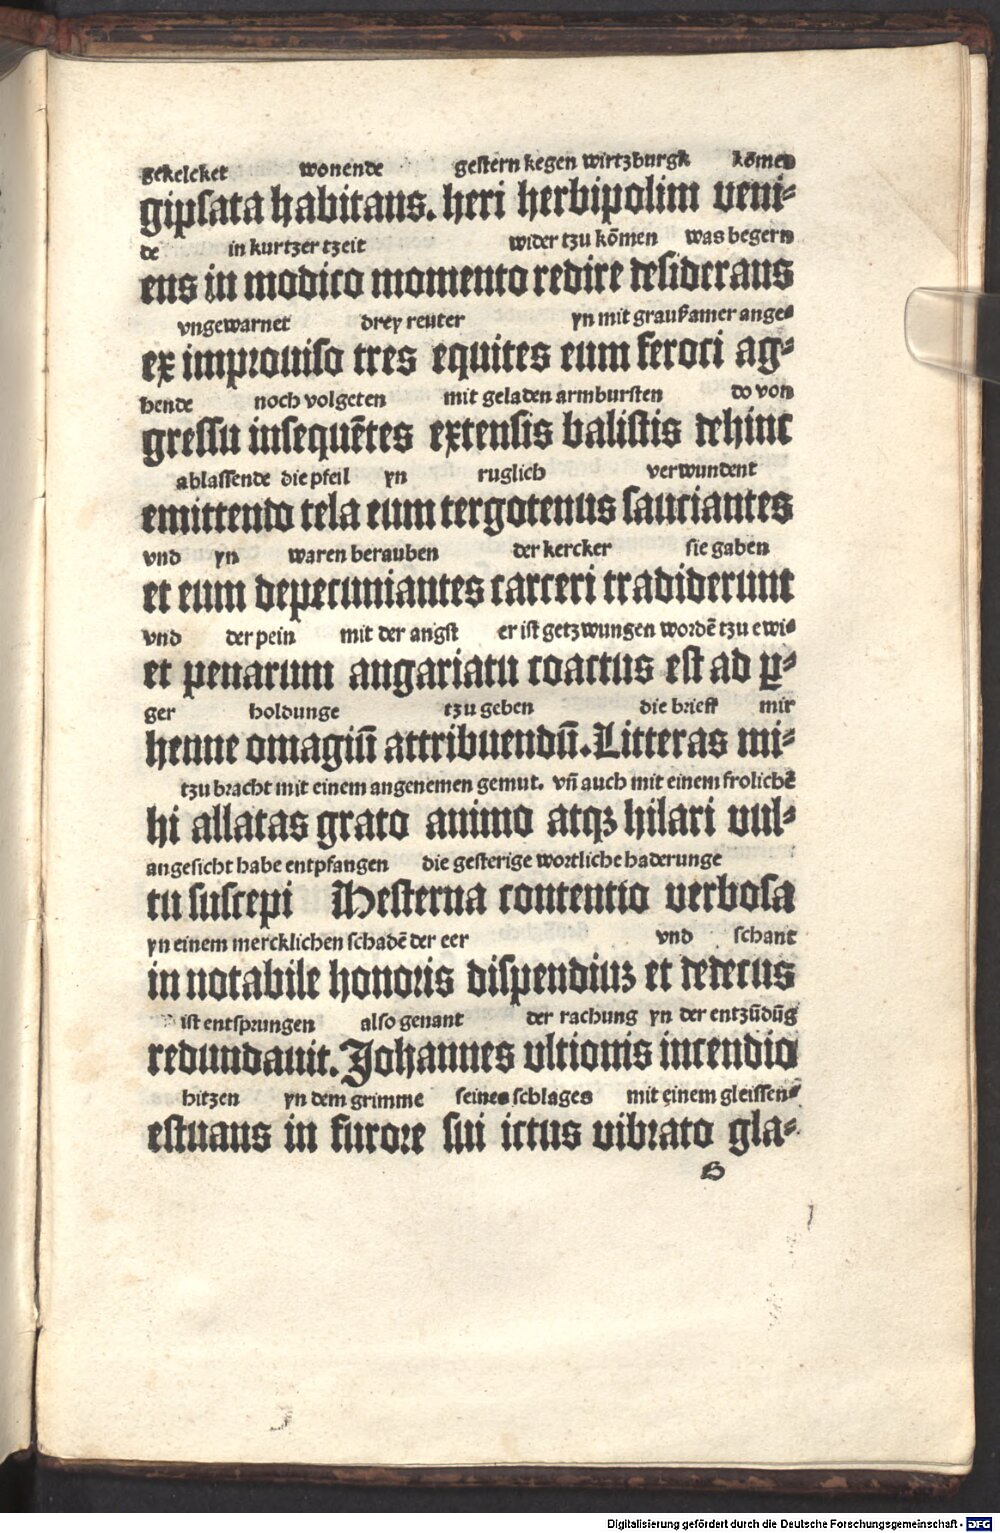 gekelcket wonende gestern kegen wirtzburgk kōmen
gipsata habitans. heri herbipolim veni⸗
de in kurtzer tzeit wider tzu kōmen was begern
ens in modico momento redire desiderans
vngewarnet drey reuter yn mit graußamer ange⸗
ex improuiso tres equites eum feroci ag⸗
hende noch volgeten mit geladen armbursten do von
gressu insequētes extensis balistis dehinc
ablassende die pfeil yn ruglich verwundent
emittendo tela eum tergotenus sauciantes
vnd yn waren berauben der kercker sie gaben
et eum depecuniantes carceri tradiderunt
vnd der pein mit der angst er ist getzwungen wordē tzu ewi⸗
et penarum angariatu coactus est ad ꝑ⸗
ger holdunge tzu geben die brieff mir
henne omagiū attribuendū. Litteras mi⸗
tzu bracht mit einem angenemen gemut. vn̄ auch mit einem frolichē
hi allatas grato animo atqꝫ hilari vul⸗
angesicht habe entpfangen die gesterige wortliche haderunge
tu suscepi Hesterna contentio verbosa
yn einem mercklichen schadē der eer vnd schant
in notabile honoris dispendiuꝫ et dedecus
ist entsprungen also genant der rachung yn der entzūdūg
redundauit. Johannes vltionis incendio
hitzen yn dem grimme seines schlages mit einem gleissen⸗
estuans in furore sui ictus vibrato gla⸗
B
Digitalisierung gefördert durch die Deutsche Forschungsgemeinschaft - DFG